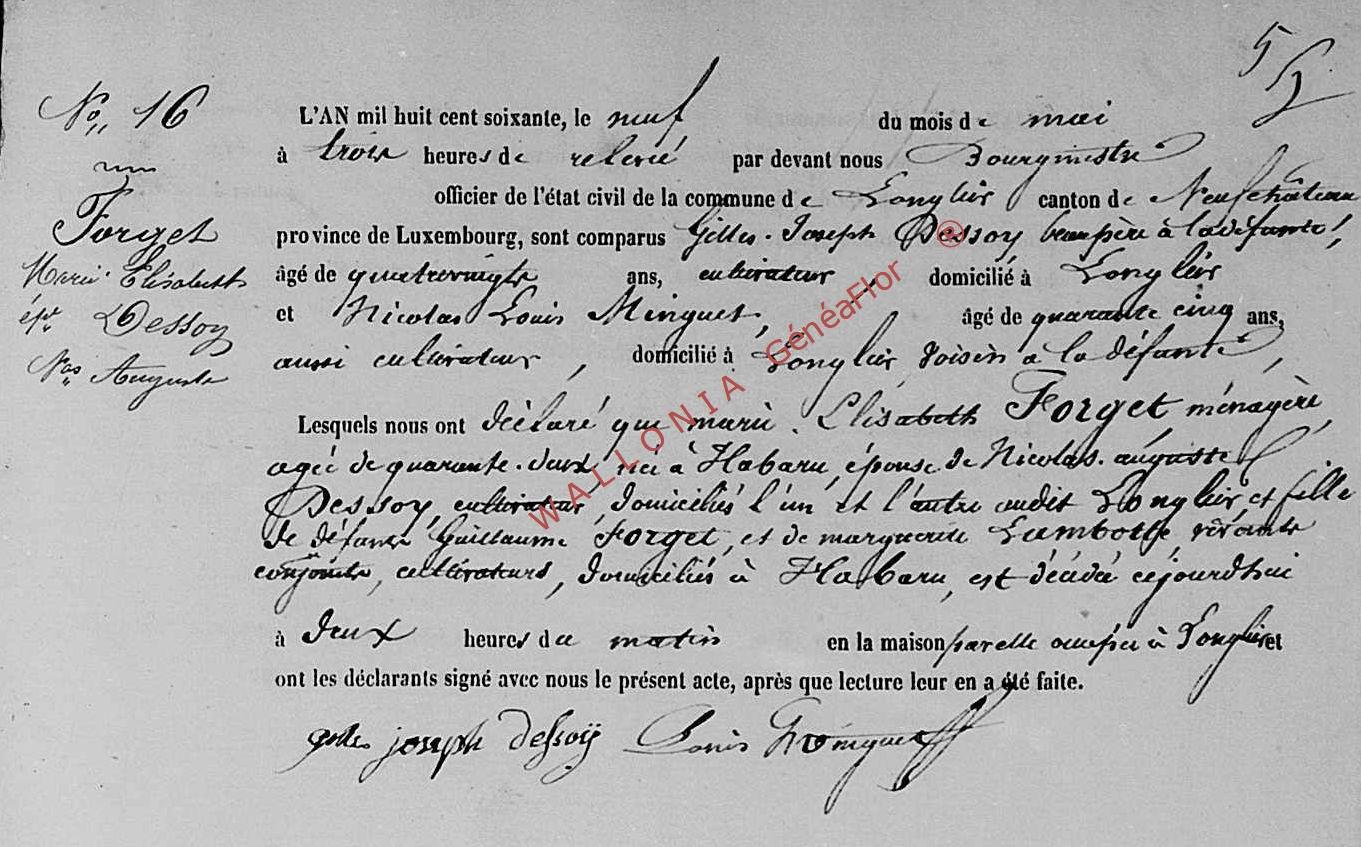 No 16
Forget
Marie Elisabeth
épe Dessoy
Nas Auguste
L'AN mil huit cent soixante, le neuf du mois de mai
à trois heures de relevé par devant nous Bourgmestre
officier de l'état civil de la commune de Longlier canton de Neufchâteau
province de Luxembourg, sont comparus Gilles-Joseph Dessoy beaupère à la défunte,
âgé de quatrevingts ans, cultivateur, domicilié à Longlier
et Nicolas Louis Minguet, âgé de quarante cinq ans,
aussi cultivateur, domicilié à Longlier, voisin à la défunte,
Lesquels nous ont déclaré que marie-Elisabeth Forget, ménagère,
agée de quarante-deux, née à Habaru, épouse de Nicolas-auguste
Dessoy, cultivateur, domiciliés l'un et l'autre audit Longlier, et fille
de défunt Guillaume Forget, et de marguerite Lambotte vivante
conjoints, cultivateurs, domiciliés à Habaru, est décédée cejourdhui
à deux heures du matin en la maison par elle occupée à Longlier et
ont les déclarants signé avec nous le présent acte, après que lecture leur en a été faite.
gilles joseph dessoÿ Louis
WALLONIA GénéaFlor ®